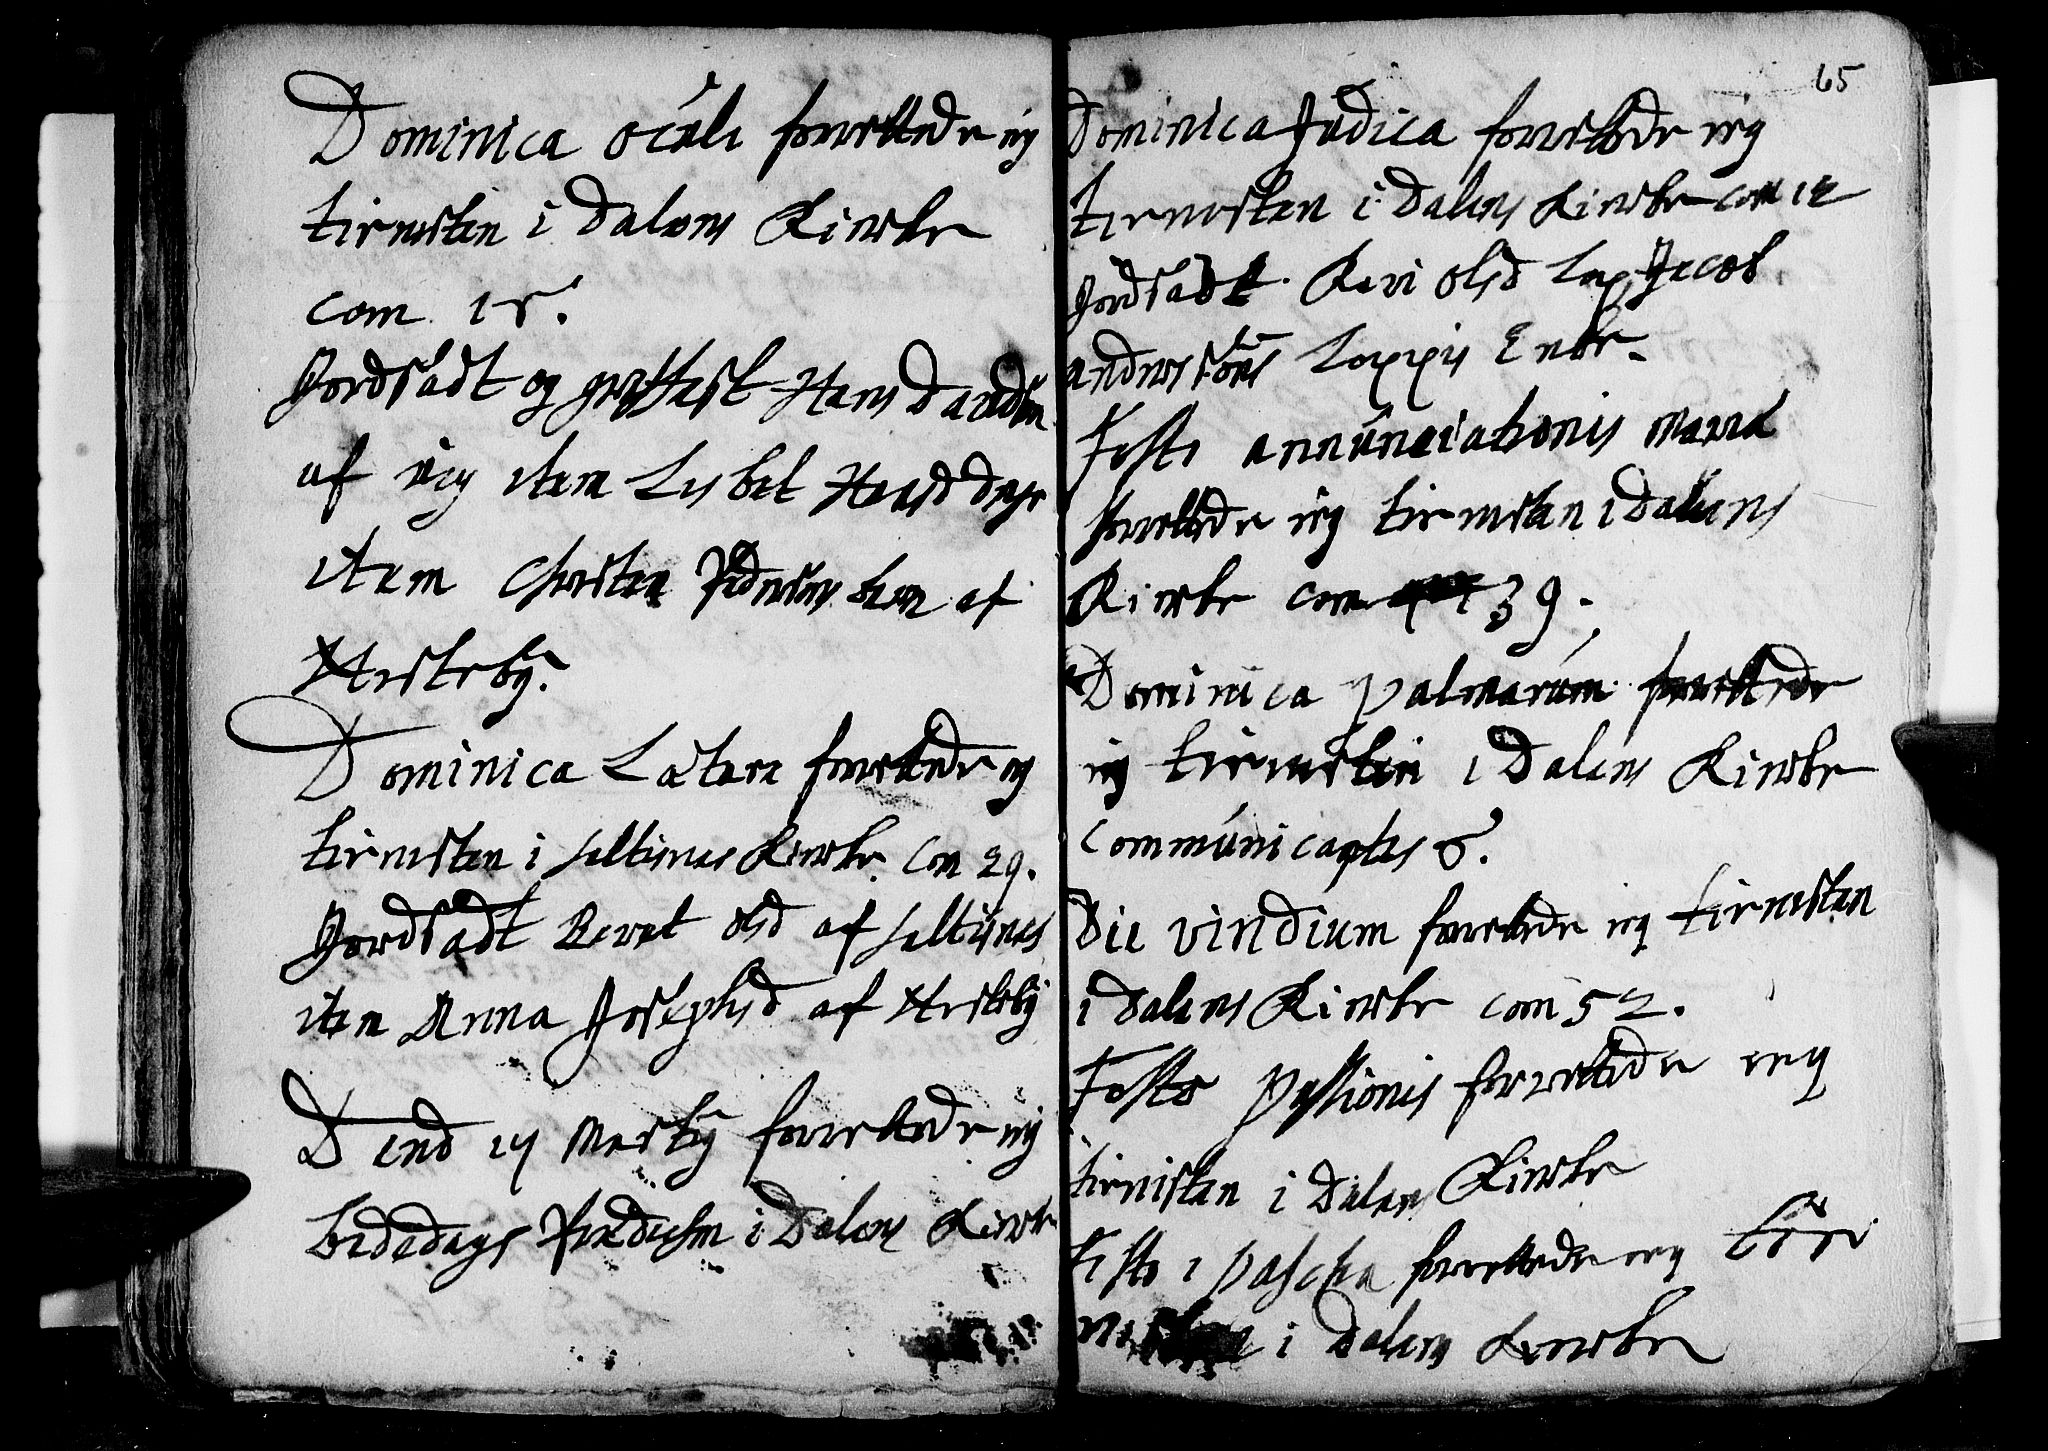 Dominica Oculi forrettede ieg
tienesten i Dalens Kiercke
com 15.
Jordsadt og graffest Hans
af ieg item Lisbet
item Christen Pedersens barn af
Dominica Lætare forrettede ieg
tienesten i Kiercke. Com 29.
Jordsadt Beret Olsd af
item Anna Josephsd af
Dend 14 Martij forrettede ieg
bededags Prædicken i Dalens Kiercke
65
Dominica Judica forrettede ieg
tienesten i Dalens Kiercke com 12
Jordsadt Kari Olsd Lap Jacob
Andersøns Lappis Encke.
Festo annunciationis Mariæ
forrettede ieg tienesten i Dalens
Kiercke com 39.
Dominica Palmarum forrettede
ieg tienesten i Dalens Kiercke
communicantes 8.
Die viridium forrettede ieg tienesten
i Dalens Kiercke com 52.
Festo Passionis forrettede ieg
tienisten i Dalens Kiercke
Festo 1 Pascha forrettede ieg
i Dalens Kiercke